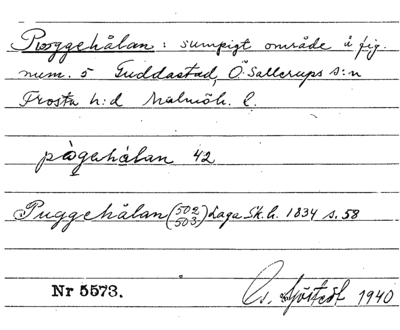 Poggehålan: sumpigt område å fig.
num. 5 Guddastad, Ö. Sallerups s:n
Frosta h:d Malmöh. l.
pågehålan 42
Puggehålan (502 503) Laga Sk. h. 1834 s. 58
Nr 5573. Sjöstedt 1940